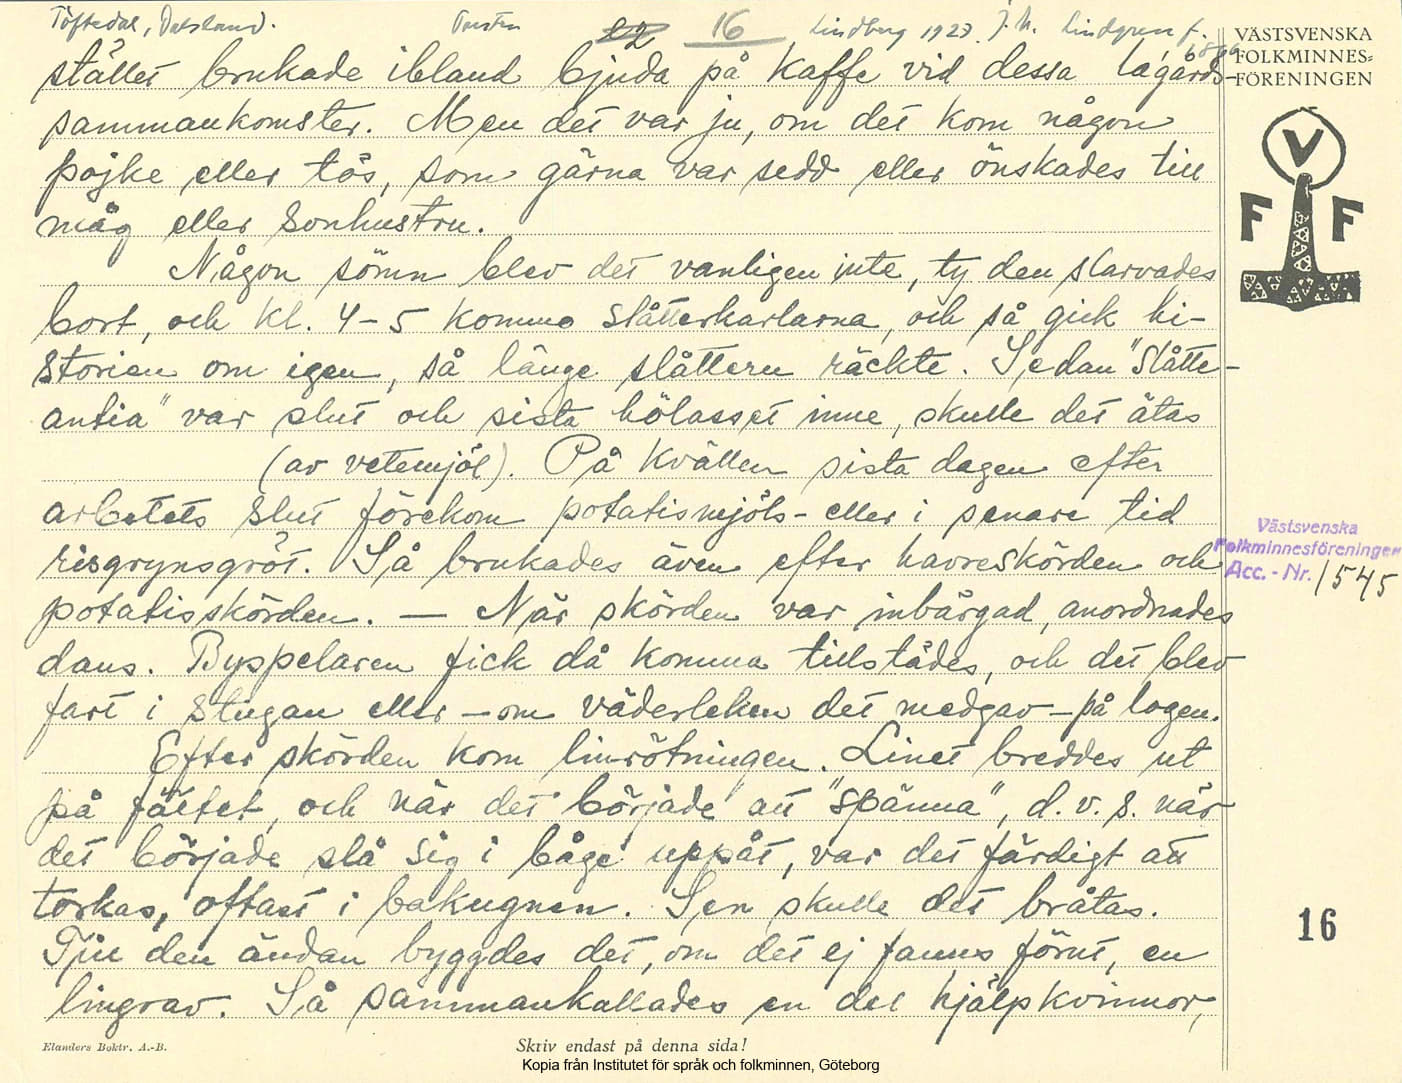 Töftedal, Dalsland. Torsten 22 16 Lindberg 1923. J. M. Lindgren f. 1866
VÄSTSVENSKA
FOLKMINNES=
FÖRENINGEN
stället brukade ibland bjuda på kaffe vid dessa lagårds-
sammankomster. Men det var ju, om det kom någon
pojke eller tös, som gärna var sedd eller önskades till
måg eller sonhustru.
V
F F
Någon sömn blev det vanligen inte, ty den slarvades
bort, och kl. 4-5 kommo slåtterkarlarna, och så gick hi-
storien om igen, så länge slåttern räckte. Sedan "slåtte-
antia" var slut och sista hölasset inne, skulle det ätas
(av vetemjöl). På kvällen sista dagen efter
arbetets slut förekom potatismjöls- eller i senare tid
risgrynsgröt. Så brukades även efter havreskörden och
potatisskörden. — När skörden var inbärgad, anordnades
Västsvenska
Folkminnesföreningen
Acc.-Nr. 1545
dans. Byspelaren fick då komma tillstädes, och det blev
fart i stugan eller - om väderleken det medgav - på logen.
Efter skörden kom linrötningen. Linet breddes ut
på fältet, och när det började att "spänna", d.v.s. när
det började slå sig i båge uppåt, var det färdigt att
torkas, oftast i bakugnen. Sen skulle det bråtas.
16
Till den ändan byggdes det, om det ej fanns förut, en
lingrav. Så sammankallades en del hjälpkvinnor,
Elanders Boktr. A.-B.
Skriv endast på denna sida!
Kopia från Institutet för språk och folkminnen, Göteborg